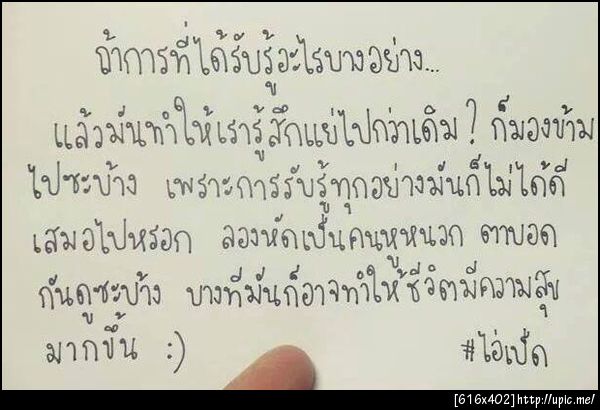 ถ้าการที่ได้รับรู้อะไรบางอย่าง...
แล้วมันทำให้เรารู้สึกแย่ไปกว่าเดิม? ก็มองข้าม
ไปซะบ้าง เพราะการรับรู้ทุกอย่างมันก็ไม่ได้ดี
เสมอไปหรอก ลองหัดเป็นคนหูหนวก ตาบอด
กันดูซะบ้าง บางทีมันก็อาจทำให้ชีวิตมีความสุข
มากขึ้น :)
#ไอ่เป็ด
[616x402]http://upic.me/